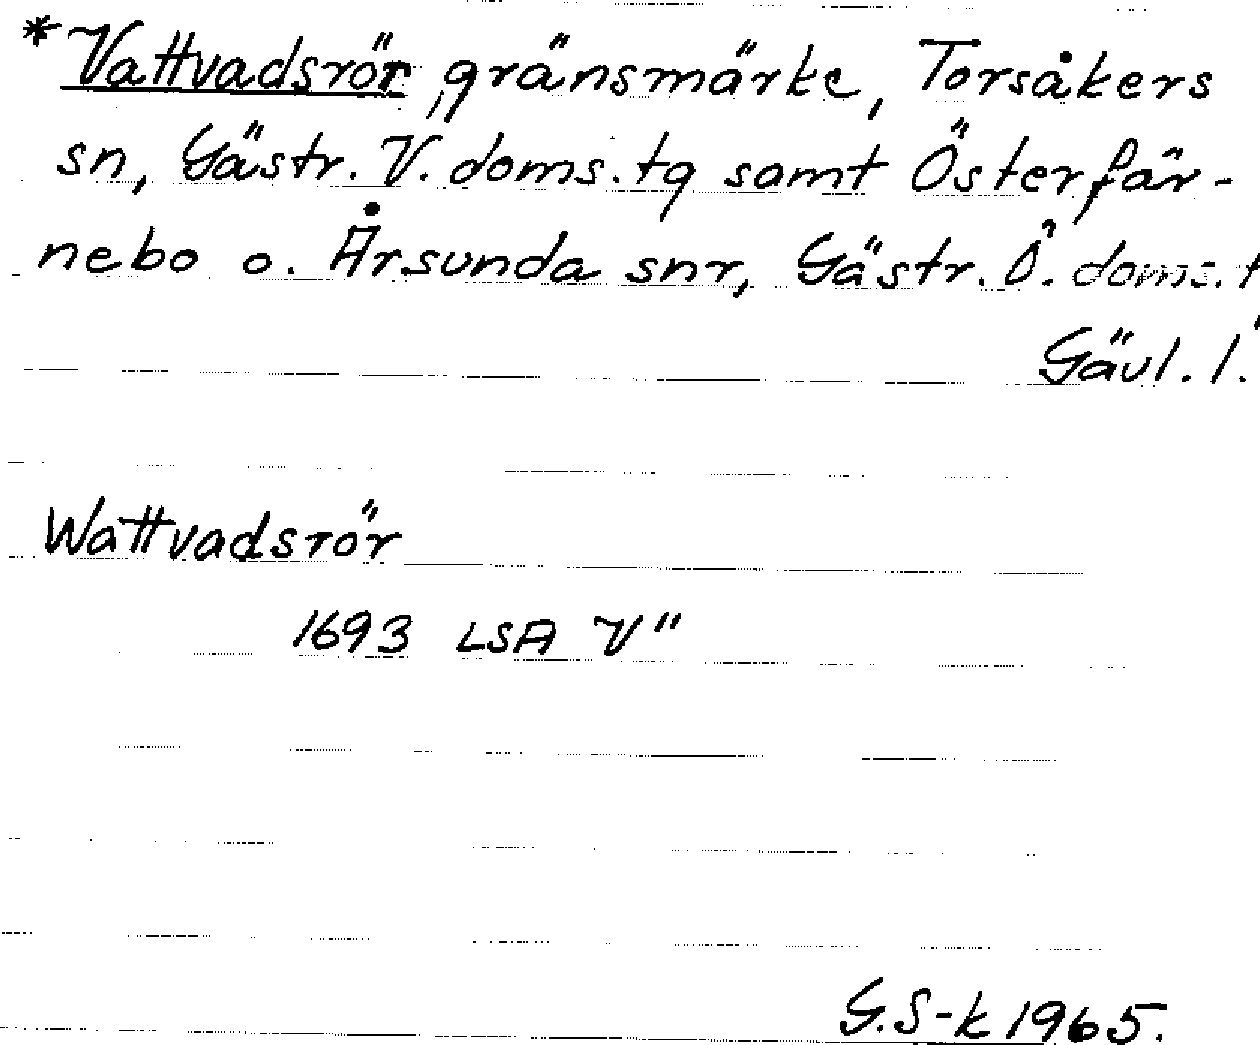 *Vattvadsrör, gränsmärke, Torsåkers
sn, Gästr. V. doms. tg samt Österfär-
nebo o. Årsunda snr, Gästr. Ö. doms. t
Gävl. l.
Wattvadsrör
1693 LSA V"
G.S-k 1965.